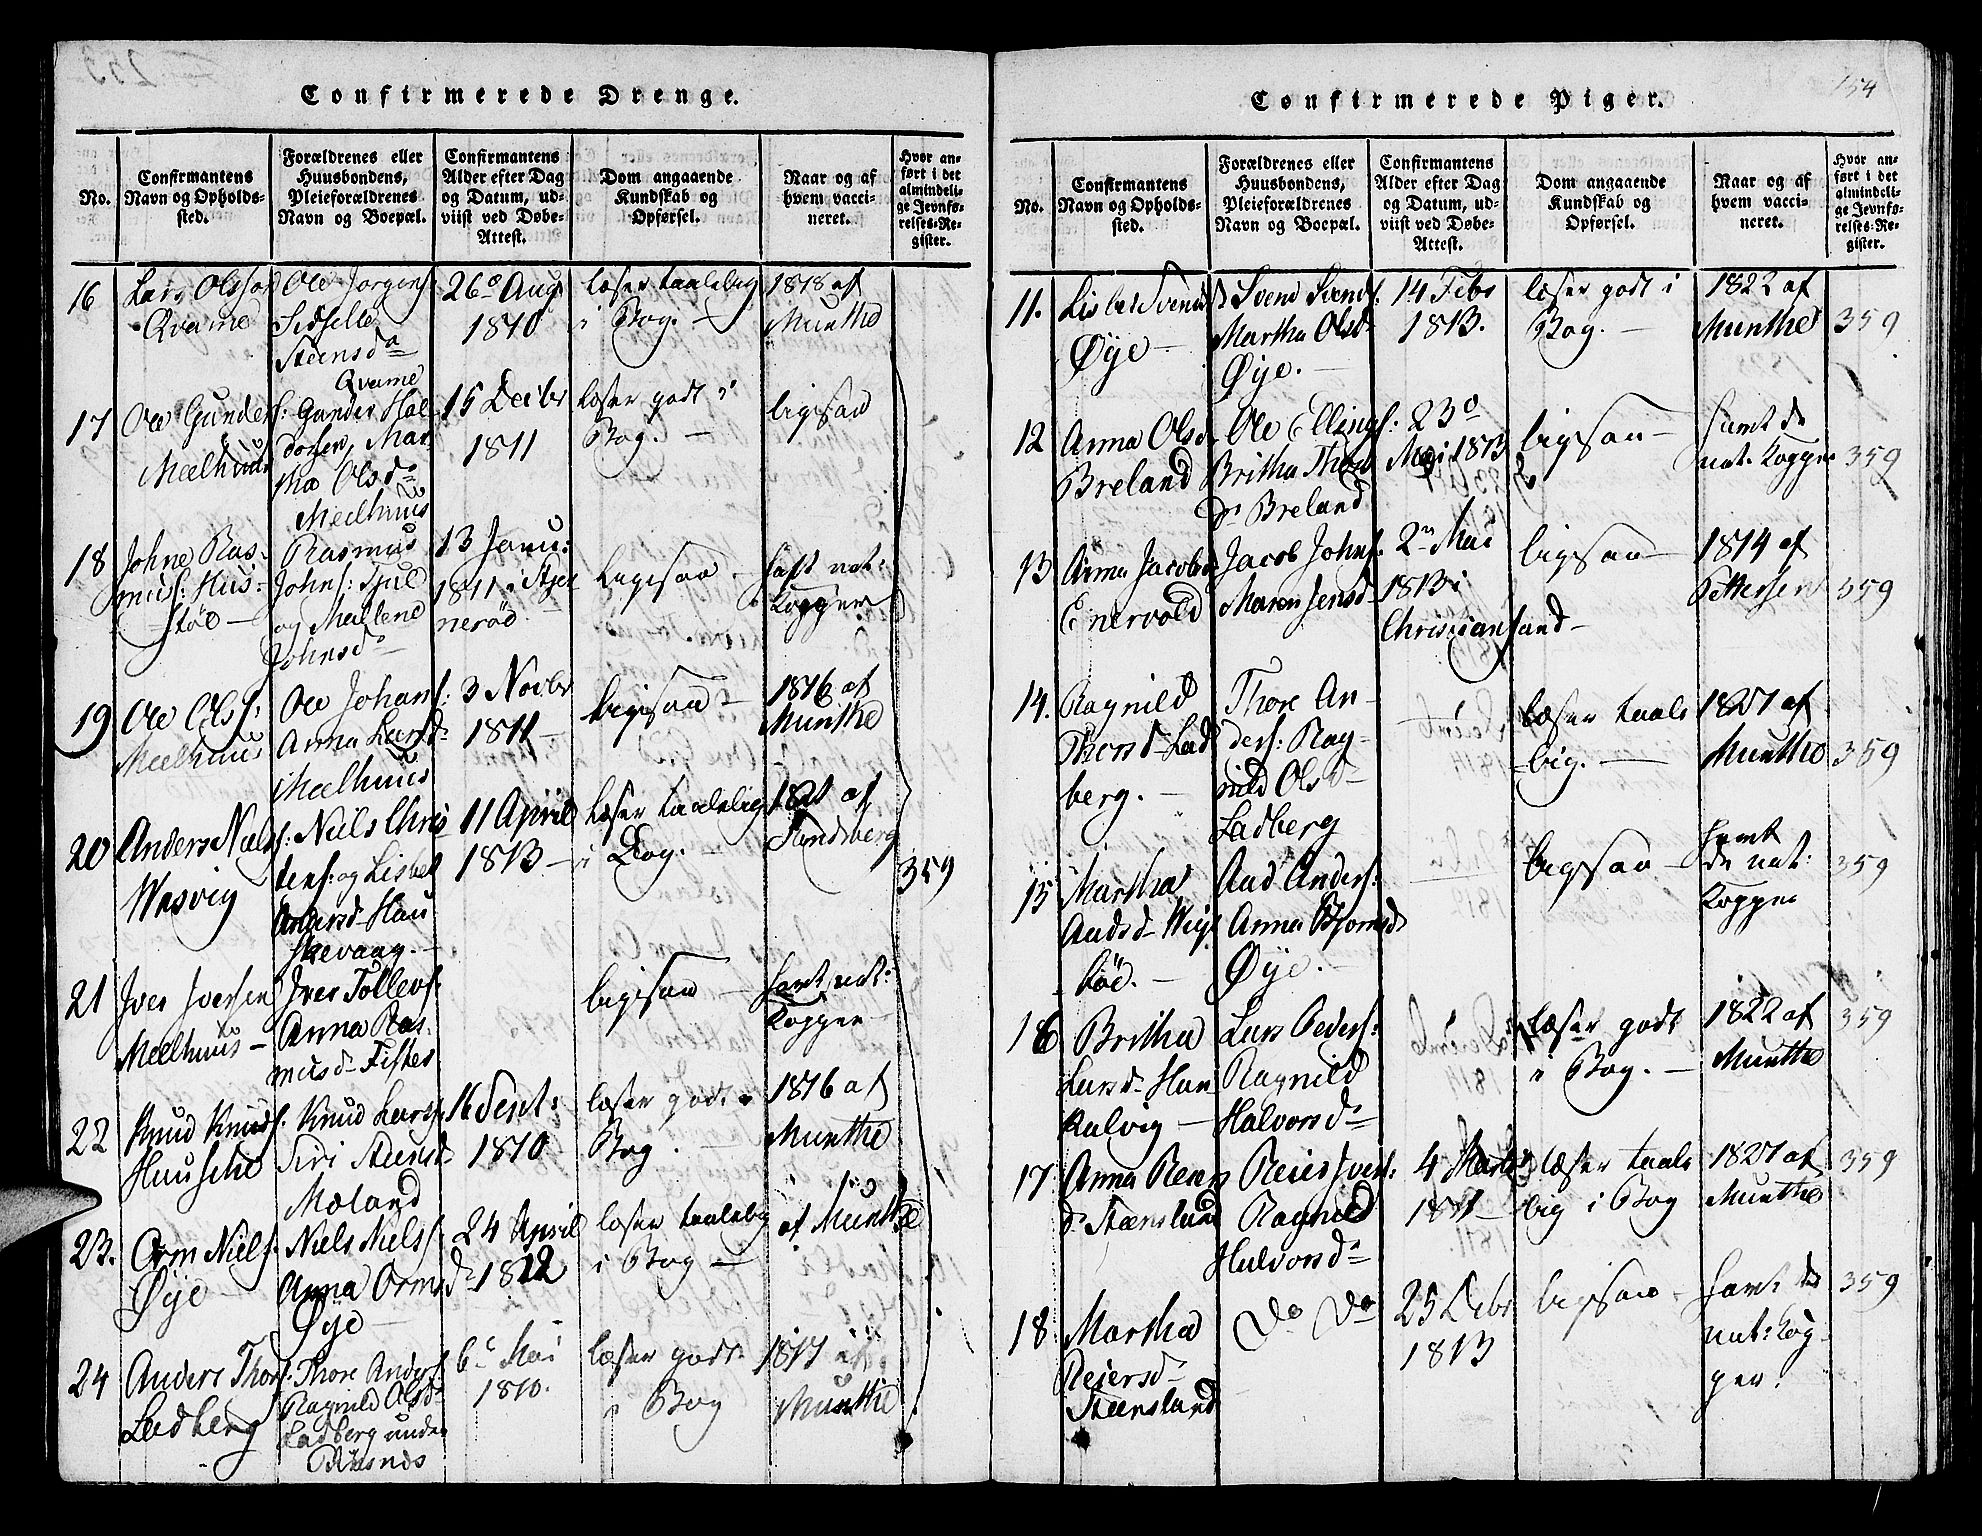 Confirmerede Drenge.
No.
Confirmantens
Navn og Opholds-
sted.
Forældrenes eller
Huusbondens,
Pleieforældrenes
Navn og Boepæl.
Confirmantens
Alder efter Dag
og Datum, ud-
viist ved Døbe-
Attest.
Dom angaaende
Kundskab og
Opførsel.
Naar og af
hvem vacci-
neret.
Hvor an-
ført i det
almindeli-
ge Jevnfø-
relses-Re-
gister.
16
Lars Olsson
Qvame
Ole Jorgens:
Sidselle
Steensda
Qvame
26de Aug
1810
læser taalelig
i Bog. -
1818 af
Munthe
17
Ole Gunders:
Meelhuus
Gunder Hal-
dorsen, Mar-
tha Olsd:
Meelhuus
15 Decbr
1811
læser godt i
Bog. -
ligesaa
18
Johne Ras-
mus: Hus-
støe -
Rasmus
Johns: Hjul
og Mallene
Johnsd:
13 Janu:
1811 i Stje
nerød
ligesaa -
haft nat:
Kopper
19
Ole Ols:
Meelhuus
Ole Johans:
Anna Larsd-
Meelhuus
3 Novbr
1811 -
ligesaa -
1816 af
Munthe
20
Anders Niels:
Wasvig
Niels Chris
tens: og Lisbet
Andersd- Hau
skevaag. -
11 April
1813 -
læser taalelig
i Bog. -
1821 af
Sundberg
359
21
Iver Iversen
Meelhuus -
Iver Tollevs:
Anna Ras-
musd- Fister
ligesaa -
havt nat:
Kopper -
22
Knud Knuds:
Knud Lars:
Siri Steensd-
Moland
16 Sept:
1810
læser godt i
Bog. -
1816 af
Munthe
23.
Orm Niels:
Øye -
Niels Niels:
Anna Orms
d-
Øye -
24 April
1812
læser taalelig
i Bog -
af Munthe
24
Anders Thors:
Ladberg
Thore Anders:
Ragnild Olsd-
Ladberg under
6te Mai
1810.
læser godt
i Bog
1817 af
Munthe
Confirmerede Piger.
154
No.
Confirmantens
Navn og Opholds-
sted.
Forældrenes eller
Huusbondens,
Pleieforældrenes
Navn og Boepæl.
Confirmantens
Alder efter Dag
og Datum, ud-
viist ved Døbe-
Attest.
Dom angaaende
Kundskab og
Opførsel.
Naar og af
hvem vacci-
neret.
Hvor an-
ført i det
almindeli-
ge Jevnfø-
relses-Re-
gister.
11.
Lisbet Svensd
Øye -
Svend Svends:
Martha Olsd-
Øye. -
14 Febr
1813.
læser godt i
Bog. -
1822 af
Munthe
359
12
Anna Olsd-
Breland
Ole Ellings:
Britha Thor
d- Breland
23de
Mai 1813
ligesaa -
havt de
nat: Kopper
359
13
Anna Jacobsd
Enervold
Jacob Johns:
Maren Jensd-
2n Mai
1813 i
Christiansand -
ligesaa -
1814 af
Pettersen
359
14.
Ragnild
Thorsd- Lad
berg. -
Thore An-
ders: Rag-
nild Olsd-
Ladberg
læser taale
lig. -
1821 af
Munthe
359
15
Martha
Audsd- Wig
støe. -
Aad Anders:
Anna Bjornsd
Øye. -
ligesaa -
havt
de nat:
Kopper
359
16
Britha
Larsd- Han
kalvig -
Lars Peders:
Ragnild
Halvorsd-
læser godt
i Bog. -
1822 af
Munthe
359
17
Anna Reiers
d- Steensland
Reier Ivers:
Ragnild
Halvorsd-
4 Marts
1811 -
læser taale
lig i Bog
1821 af
Munthe
359
18.
Martha
Reiersd-
Steensland
Do Do
25 Debr
1813
ligesaa -
havt de
nat: Kop-
per.
359